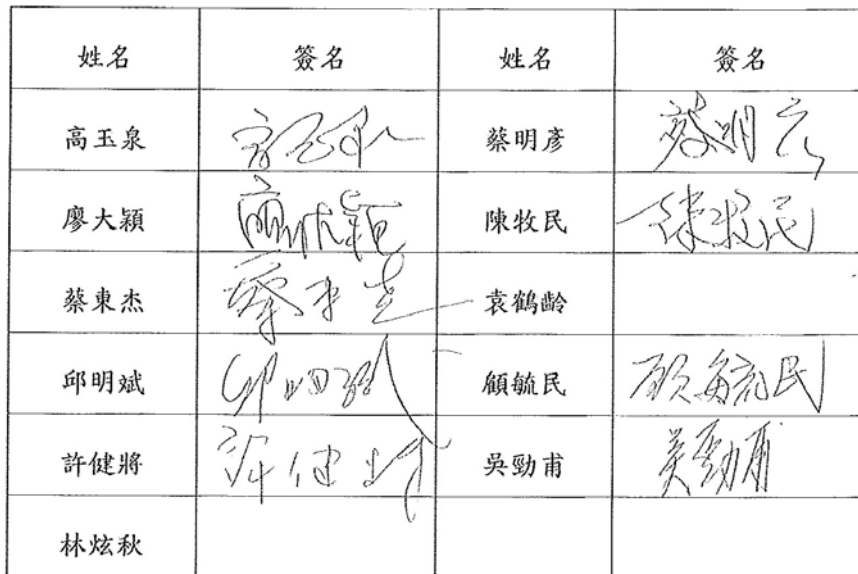 姓名 簽名 姓名 簽名
高玉泉 高玉泉 蔡明彥 蔡明彥
廖大穎 廖大穎 陳牧民 陳牧民
蔡東杰 蔡東杰 袁鶴齡
邱明斌 邱明斌 顧毓民 顧毓民
許健將 許健將 吳勁甫 吳勁甫
林炫秋